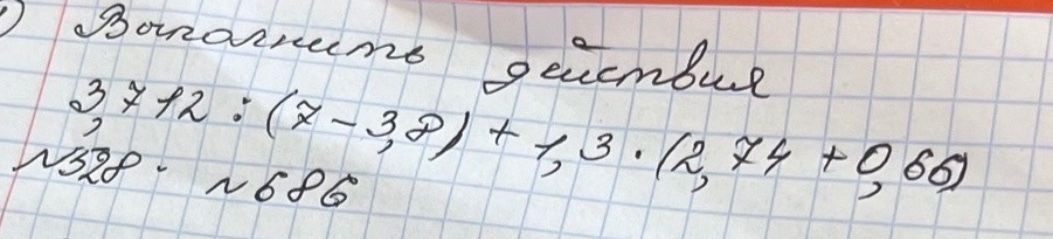 ) Выполнить действия
3,712 : (7 - 3,8) + 1,3 · (2,74 + 0,66)
№328. №686